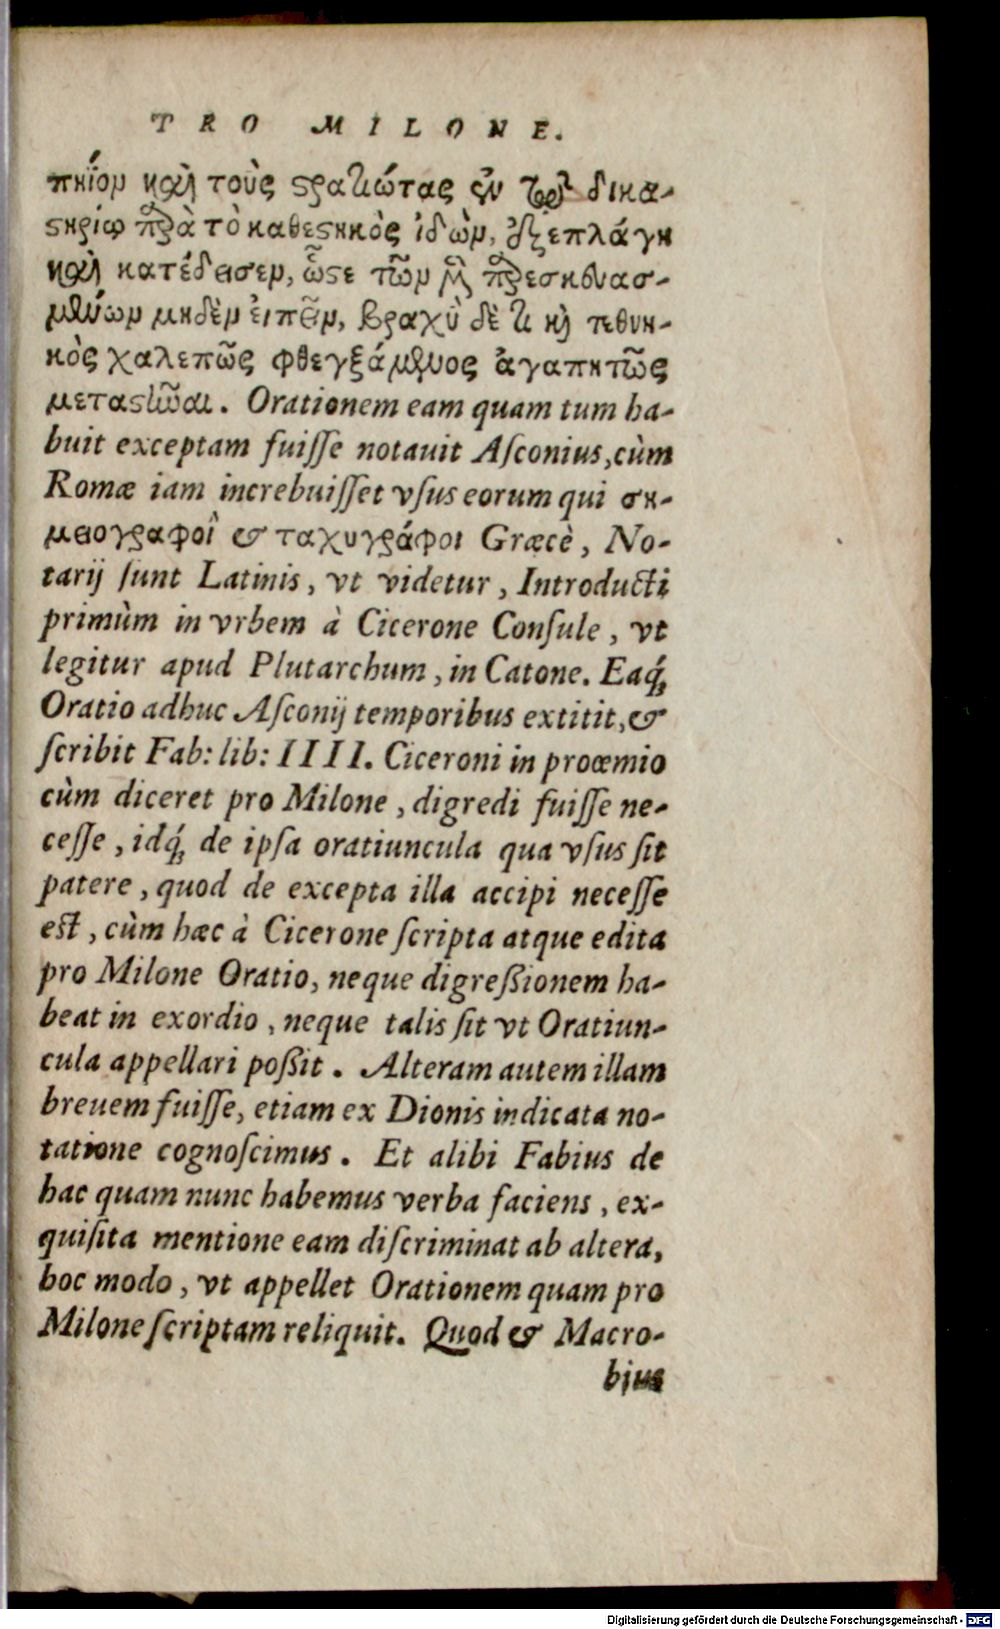 PRO MILONE.
πηΐον καὶ τοὺς στρατιώτας ἐν τῷ δικα-
στηρίῳ παρὰ τὸ καθεστηκὸς ἰδὼν, ἐξεπλάγη
καὶ κατέδεισεν, ὥστε τῶν μὲν παρεσκευασ-
μένων μηδὲν εἰπεῖν, βραχὺ δέ τι καὶ τεθνη-
κὸς χαλεπῶς φθεγξάμενος ἀγαπητῶς
μεταστῶαι. Orationem eam quam tum ha-
buit exceptam fuiſſe notauit Aſconius, cùm
Romæ iam increbuiſſet vſus eorum qui ση-
μειογραφοῖ & ταχυγράφοι Græcè, No-
tarij ſunt Latinis, vt videtur, Introducti
primùm in vrbem à Cicerone Conſule, vt
legitur apud Plutarchum, in Catone. Eaq́ꝫ
Oratio adhuc Aſconij temporibus extitit, &
ſcribit Fab: lib: IIII. Ciceroni in proœmio
cùm diceret pro Milone, digredi fuiſſe ne-
ceſſe, idq́ꝫ de ipſa oratiuncula qua vſus ſit
patere, quod de excepta illa accipi neceſſe
eſt, cùm hæc à Cicerone ſcripta atque edita
pro Milone Oratio, neque digreßionem ha-
beat in exordio, neque talis ſit vt Oratiun-
cula appellari poßit. Alteram autem illam
breuem fuiſſe, etiam ex Dionis indicata no-
tatione cognoſcimus. Et alibi Fabius de
hac quam nunc habemus verba faciens, ex-
quiſita mentione eam diſcriminat ab altera,
hoc modo, vt appellet Orationem quam pro
Milone ſcriptam reliquit. Quod & Macro-
bius
Digitalisierung gefördert durch die Deutsche Forschungsgemeinschaft - DFG